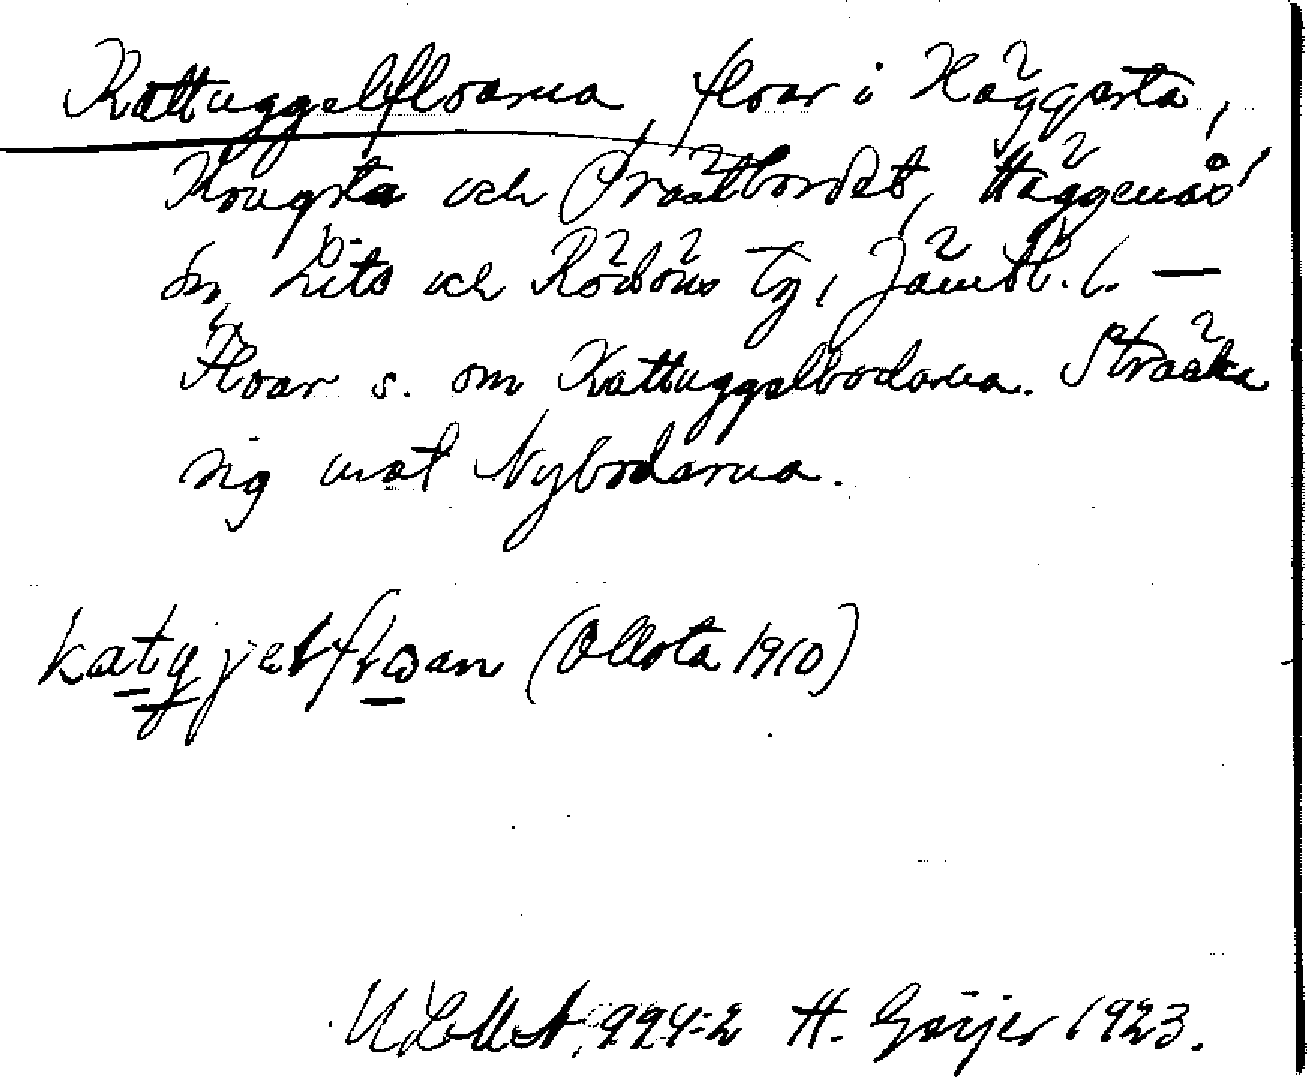 Kattuggelfloarna, floar i Häggesta,
Kougsta och Prästbordet, Häggenås
sn, Lits och Rödöns tg, Jämtl. l. —
Floar s. om Kattuggelbodarna. Sträcka
sig mot Nybodarna.
(Ollota 1910)
ULMA, 994:2 H. Geijer 1923.